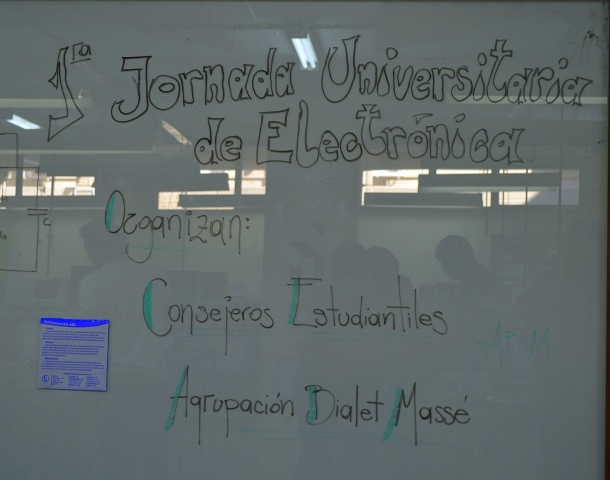 1ra Jornada Universitaria
de Electrónica
Organizan:
Consejeros Estudiantiles
Agrupación Bialet Massé